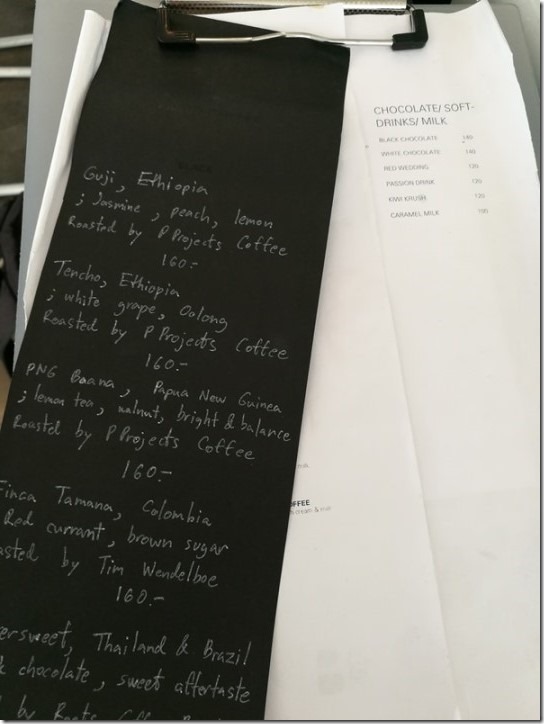 Guji, Ethiopia
; Jasmine, peach, lemon
Roasted by P Projects Coffee
160.-
Tencho, Ethiopia
; white grape, Oalong
Roasted by P Projects Coffee
160.-
PNG Baana, Papua New Guinea
; lemon tea, walnut, bright & balance
Roasted by P Projects Coffee
160.-
Finca Tamana, Colombia
Red currant, brown sugar
asted by Tim Wendelboe
160.-
ersweet, Thailand & Brazil
k chocolate, sweet aftertaste
d by Roots
CHOCOLATE/ SOFT-
DRINKS/ MILK
BLACK CHOCOLATE 140
WHITE CHOCOLATE 140
RED WEDDING 120
PASSION DRINK 120
KIWI KRUSH 120
CARAMEL MILK 100
OFFEE